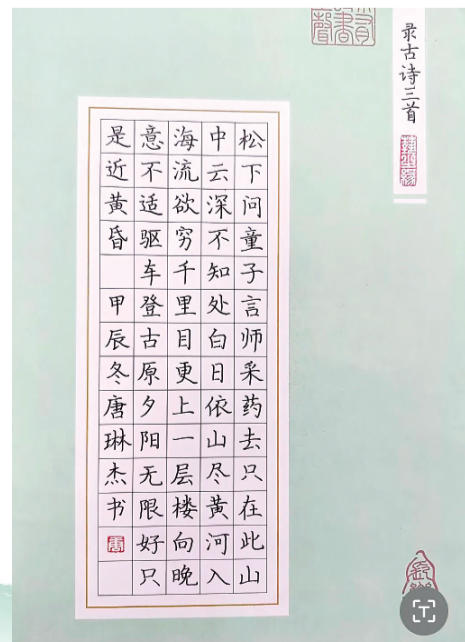 录古诗三首
松下问童子言师采药去只在此山
中云深不知处白日依山尽黄河入
海流欲穷千里目更上一层楼向晚
意不适驱车登古原夕阳无限好只
是近黄昏 甲辰冬唐琳杰书